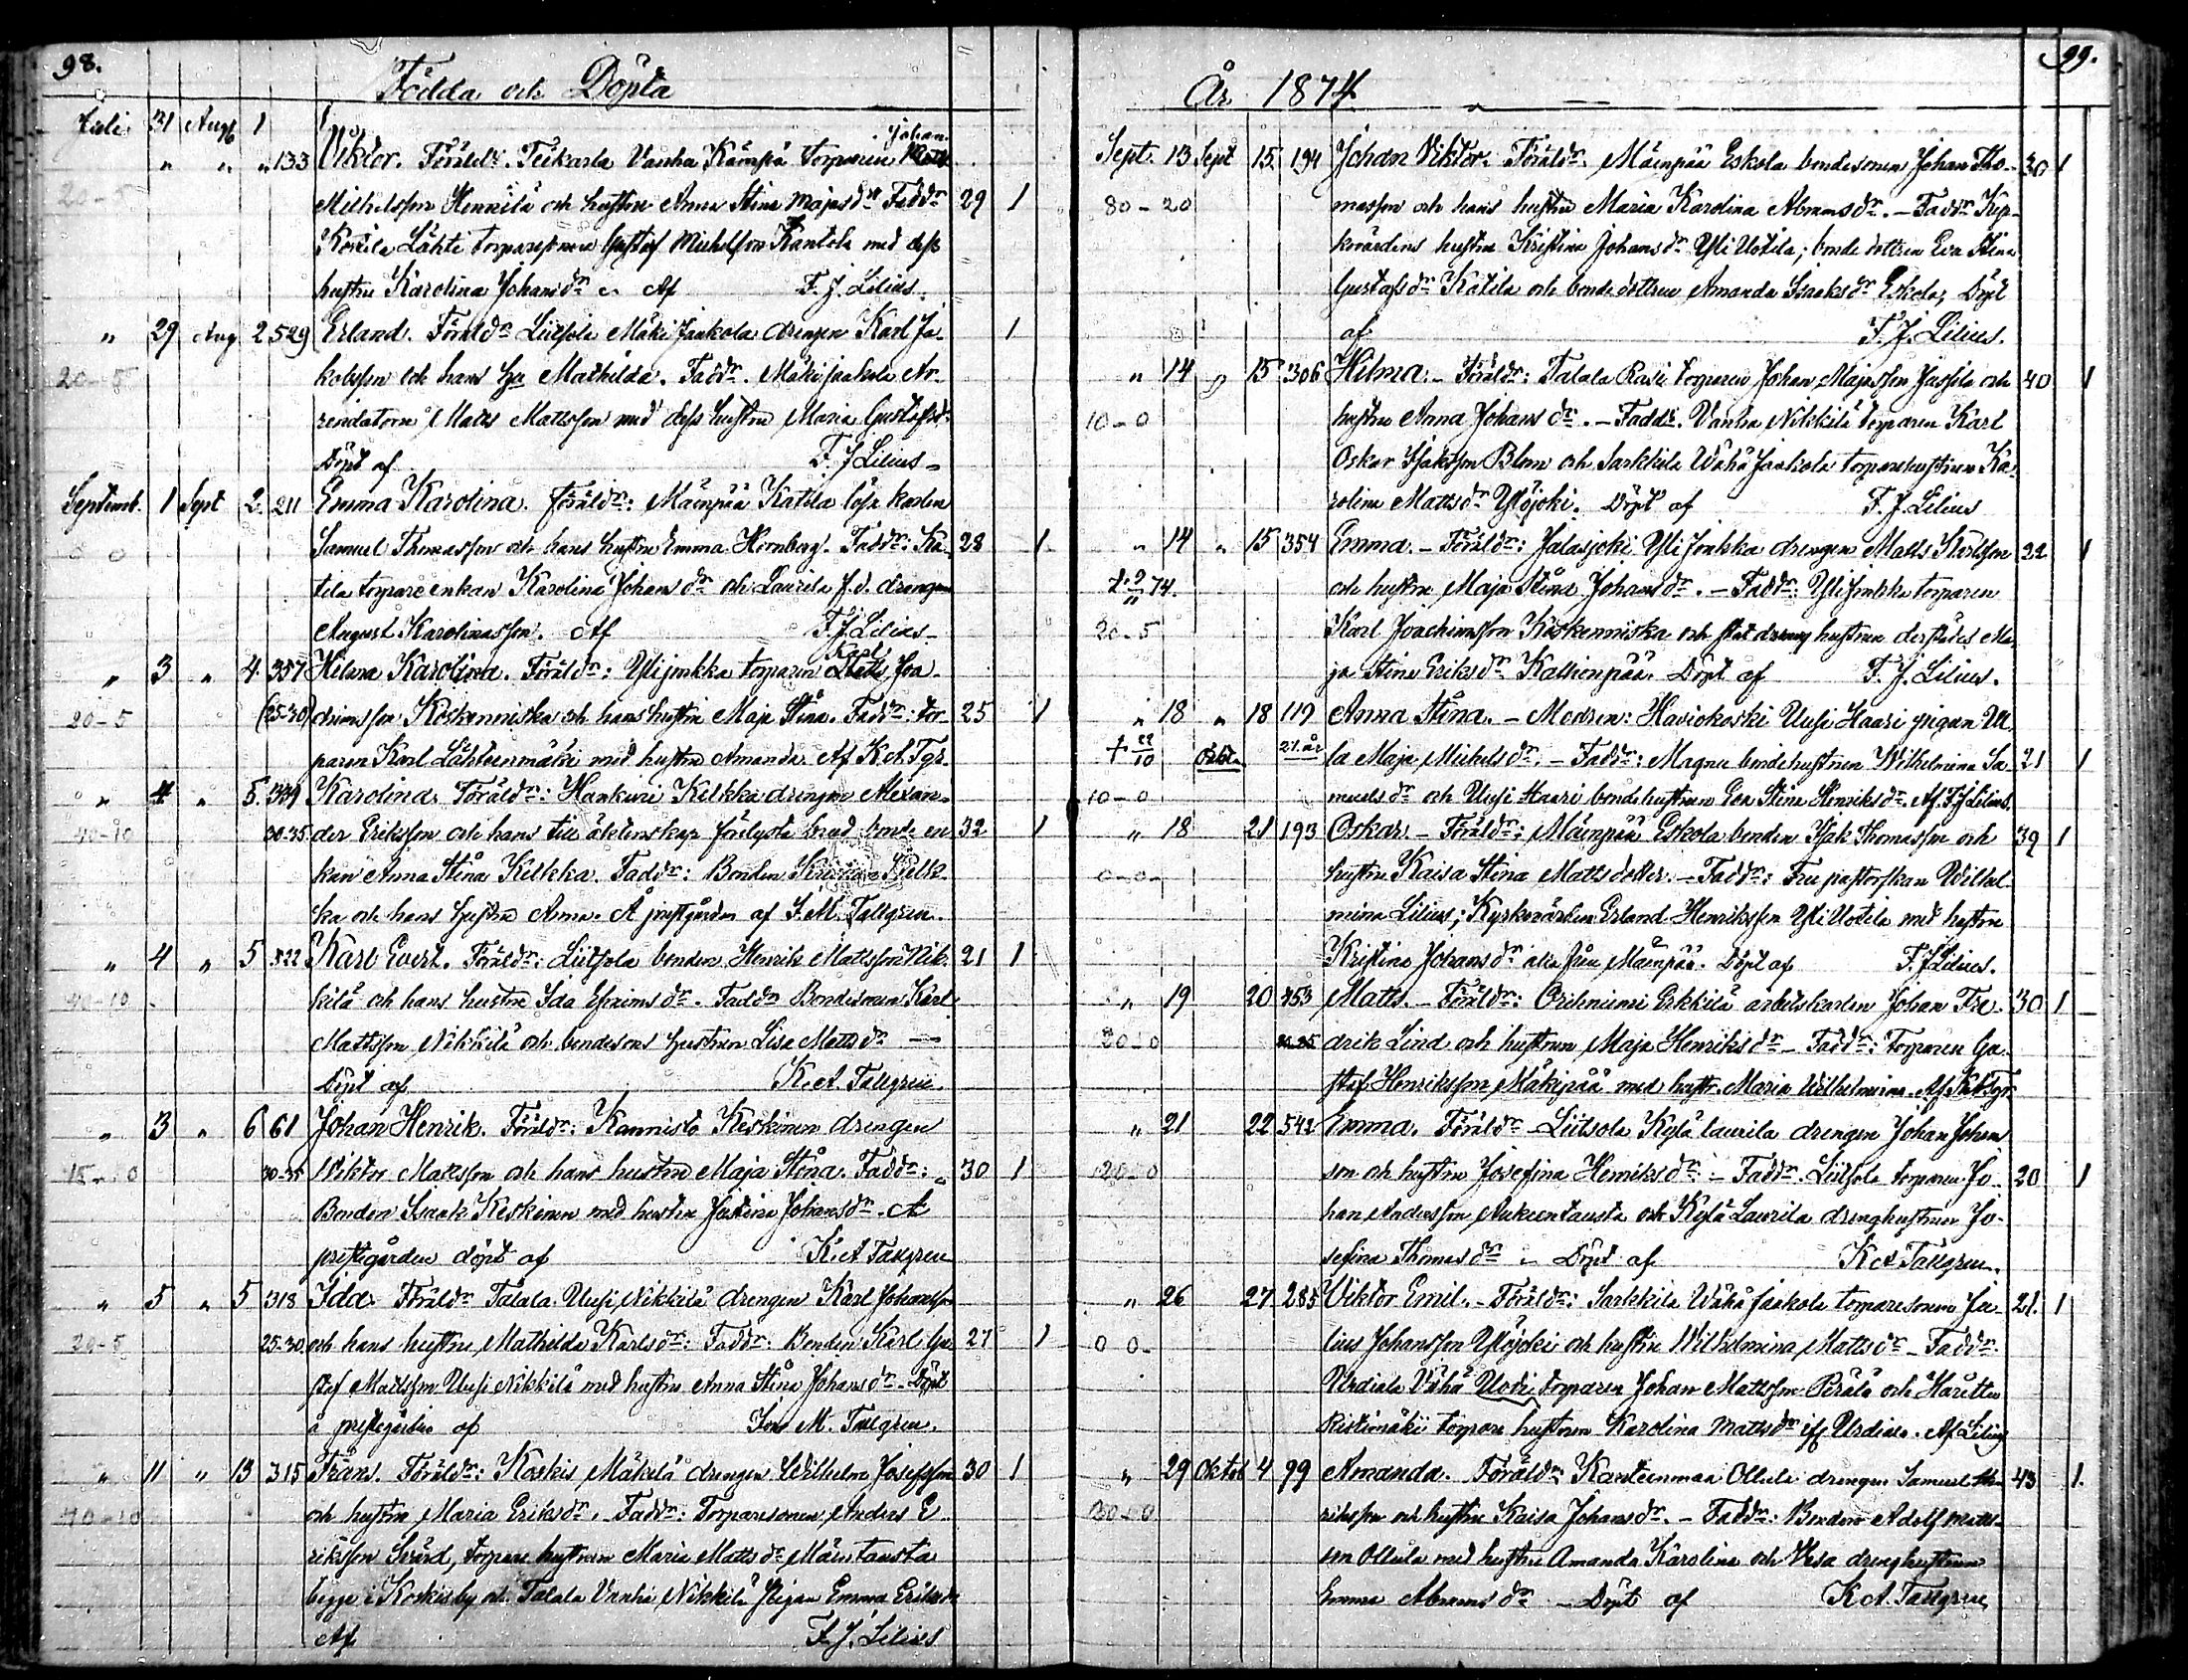 98.
Födda och Döpta
Juli 31 Aug 1
" " " 133 Viktor. Föräldr. Teikarla Vanha Kämpä torparen Johan
20-5 Michelsson Hennilä och hustru Anna Stina Majasdr Faddr 29 1
Lähti Gustaf Michelsson Kantola med dess
hustru Karolina Johansdr Af F. J. Lilius.
" 29 Aug 2 529 Erland. Föräldr Liitsola Mäki Jaakola drengen Karl Ja- 1
20-5 kobsson och hans hu Mathilda. Faddr. Mäkijaakola Ar-
rendatorn Matts Mattsson med dess hustru Maria Gustafsdr
Döpt af F. J Lilius-
Septemb. 1 Sept 2. 211 Emma Karolina. Föräldr: Mäenpää Katila lösa karlen
0 0 Samuel Thomasson och hans hustru Emma Hornberg. Faddr: Ka- 28 1
tila torpare enkan Karolina Johansdr och Laurila f.d. drengen
August Karolinasson. Af F. J. Lilius-
Karl
" 3 " 4. 357 Hilma Karolina. Föräldr: Ylijoukka torparen Joa-
20-5 (25-30) chimsson Koskenniska och hans hustru Maja Stina. Faddr: tor- 25 1
paren Karl Lähteenmäki med hustru Amanda. Af K. A. Tgr.
" 4 " 5. 339 Karolina. Föräldr: Hankuri Kelkka drengen Alexan-
40-10 30-35 der Eriksson och hans till äktenskap förlofvade brud bonde en 32 1
kan Anna Stina Kelkka. Faddr: Bonden Kelk-
ka och hans hustru Anna. Å prestgården af I. M. Tallgren.
" 4 " 5 322 Karl Evert. Föräldr: Liitsola bonden Henrik Mattsson Nik- 21 1
40-10 kilä och hans hustru Ida Efraimsdr. Faddr Bondesonen Karl
Mattsson Nikkilä och bondesons hustrun Lisa Mattsdr -
Döpt af K. A. Tallgren.
" 3 " 6 61 Johan Henrik. Föräldr: Kannisto Keskinen drengen
15-0 30-35 Viktor Mattsson och hans hustru Maja Stina. Faddr: 30 1
Bonden Isaak Keskinen med hustru Justina Johansdr. Å
prestgården döpt af K. A Tallgren
" 5 " 5 318 Ida. Föräldr Talala Uusi Nikkilä drengen Karl Johansson
20-5 25-30 och hans hustru Mathilda Karlsdr: Faddr: Bonden Karl Gu 27 1
staf Mattsson Uusi Nikkilä med hustru Anna Stina Johansdr. Döpt
å prestgården af Iwar M. Tallgren.
" 11 " 13 315 Frans. Föräldr: Koskis Mäkilä drengen Wilhelm Josefsson 30 1
40-10 och hustru Maria Eriksdr. Faddr: Torparesonen Anders E-
riksson Svärd, torpare hustrun Maria Mattsdr Mäentausta
begge i Koskis by och Talala Vanha Nikkilä pigan Emma Eriksdr
Af F. J. Lilius
99.
År 1874
Sept. 13 Sept 15. 194 Johan Viktor. Föräldr: Mäenpää Eskola bondesonen Johan Tho- 30 1
80-20 masson och hans hustru Maria Karolina Abramsdr. - Faddr Kyr-
kovärdens hustru Kristina Johansdr Yli Uotila; bonde dottren Eva Stina
Gustafsdr Katila och bondedottren Amanda Isaaksdr Eskola, Döpt
af F. J. Lilius.
" 14 " 15 306 Hilma. - Föräldr: Talala Rasi torparen Johan Majasson Jussila och 40 1
10-0 hustru Anna Johansdr. - Faddr. Vanha Nikkilä torparen Karl
Oskar Isaksson Blom och Sarkkila Wähä Jaakola torparehustrun Ka-
rolina Mattsdr Ylöjoki. Döpt af F. J. Lilius
" 14 " 15 354 Emma. - Föräldr: Jalasjoki Yli Joukka drengen Matts Karlsson 22 1
74. och hustru Maja Stina Johansdr. - Faddr: Ylijoukka torparen
20-5 Karl Joachimsson Koskenniska och stat dreng hustrun derstädes Ma-
ja Stina Eriksdr Kallionpää. Döpt af F. J. Lilius.
" 18 " 18 119 Anna Stina. - Modren: Haviokoski Uusi Haari pigan Ul-
27 år la Maja Michelsdr. - Faddr: Magnu bondehustrun Wilhelmina Sa- 21 1
10-0 muelsdr och Uusi Haari bondehustrun Eva Stina Henriksdr. Af. F. J Lilius.
" 18 21 193 Oskar - Föräldr: Mäenpää Eskola bonden Isak Thomasson och 39 1
0-0- hustru Kaisa Stina Matts dotter. - Faddr: Fru pastorskan Wilhel-
mina Lilius; Kyrkovärden Erland Henriksson Yli Uotila med hustru
Kristina Johansdr alla från Mäenpää. Döpt af F. J Lilius.
" 19 20 453 Matts. - Föräldr: Orihniemi Erkkilä arbetskarlen Johan Fre- 30 1
20-0 drik Lind och hustrun Maja Henriksdr - Faddr: Torparen Gu-
staf Henriksson Mäkipää med hustr. Maria Wilhelmina. Af K A Tgr.
" 21 22 542 Emma. Föräldr - Liitsola Kylä laurila drengen Johan Johans
20-0 son och hustru Josefina Henriksdr: - Faddr. Liitsola torparen Jo- 20 1
han Andersson Aukeentausta och Kylä Laurila drenghustrun Jo-
sefina Thomasdr - Döpt af K A Tallgren.
" 26 27 285 Viktor Emil. - Föräldr: Sarkkila Wähä Jaakola torparesonen Ju- 21. 1
0 0- lius Johansson Ylöjoki och hustru Wilhelmina Mattsdr - Faddr.
Urdiala Vähä Uotti torparen Johan Mattsson Perälä och
torpare hustrun Karolina Mattsdr Urdiala. Af Lilius
" 29 Oktob 4 99 Amanda. Föräldr: Kanteenmaa Ollula drengen Samuel He- 43 1.
30-0 riksson och hustru Kaisa Johansdr. - Faddr: Bonden Adolf Matts-
son Ollula med hustru Amanda Karolina och Vesa drenghustrun
Emma Abramsdr - Döpt af K A. Tallgren.